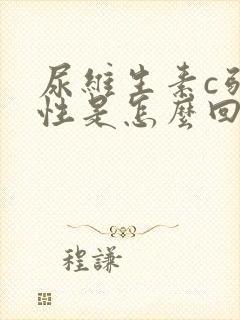 尿維生素c弱
性是怎麼回
程謙